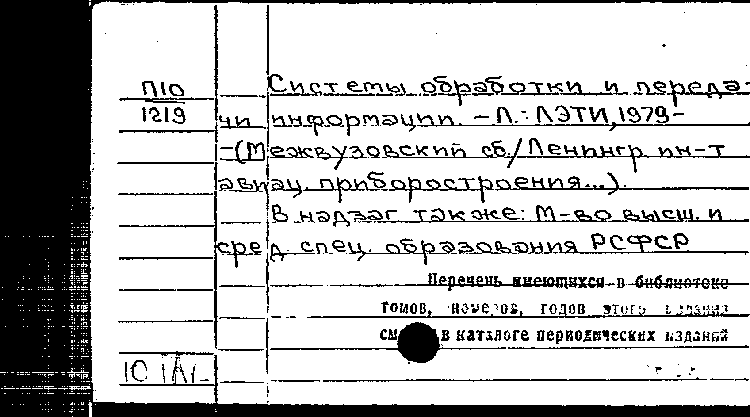 П10
1219
Системы обработки и переда-
чи информации. – Л.: ЛЭТИ, 1979-
-(Межвузовский сб./Ленингр. ин-т
авиац. приборостроения...).
В надзаг также: М-во высш. и
сред. спец. образования РСФСР
Перечень имеющихся в библиотеке
томов, номеров, годов этого издания
см в каталоге периодических изданий
10